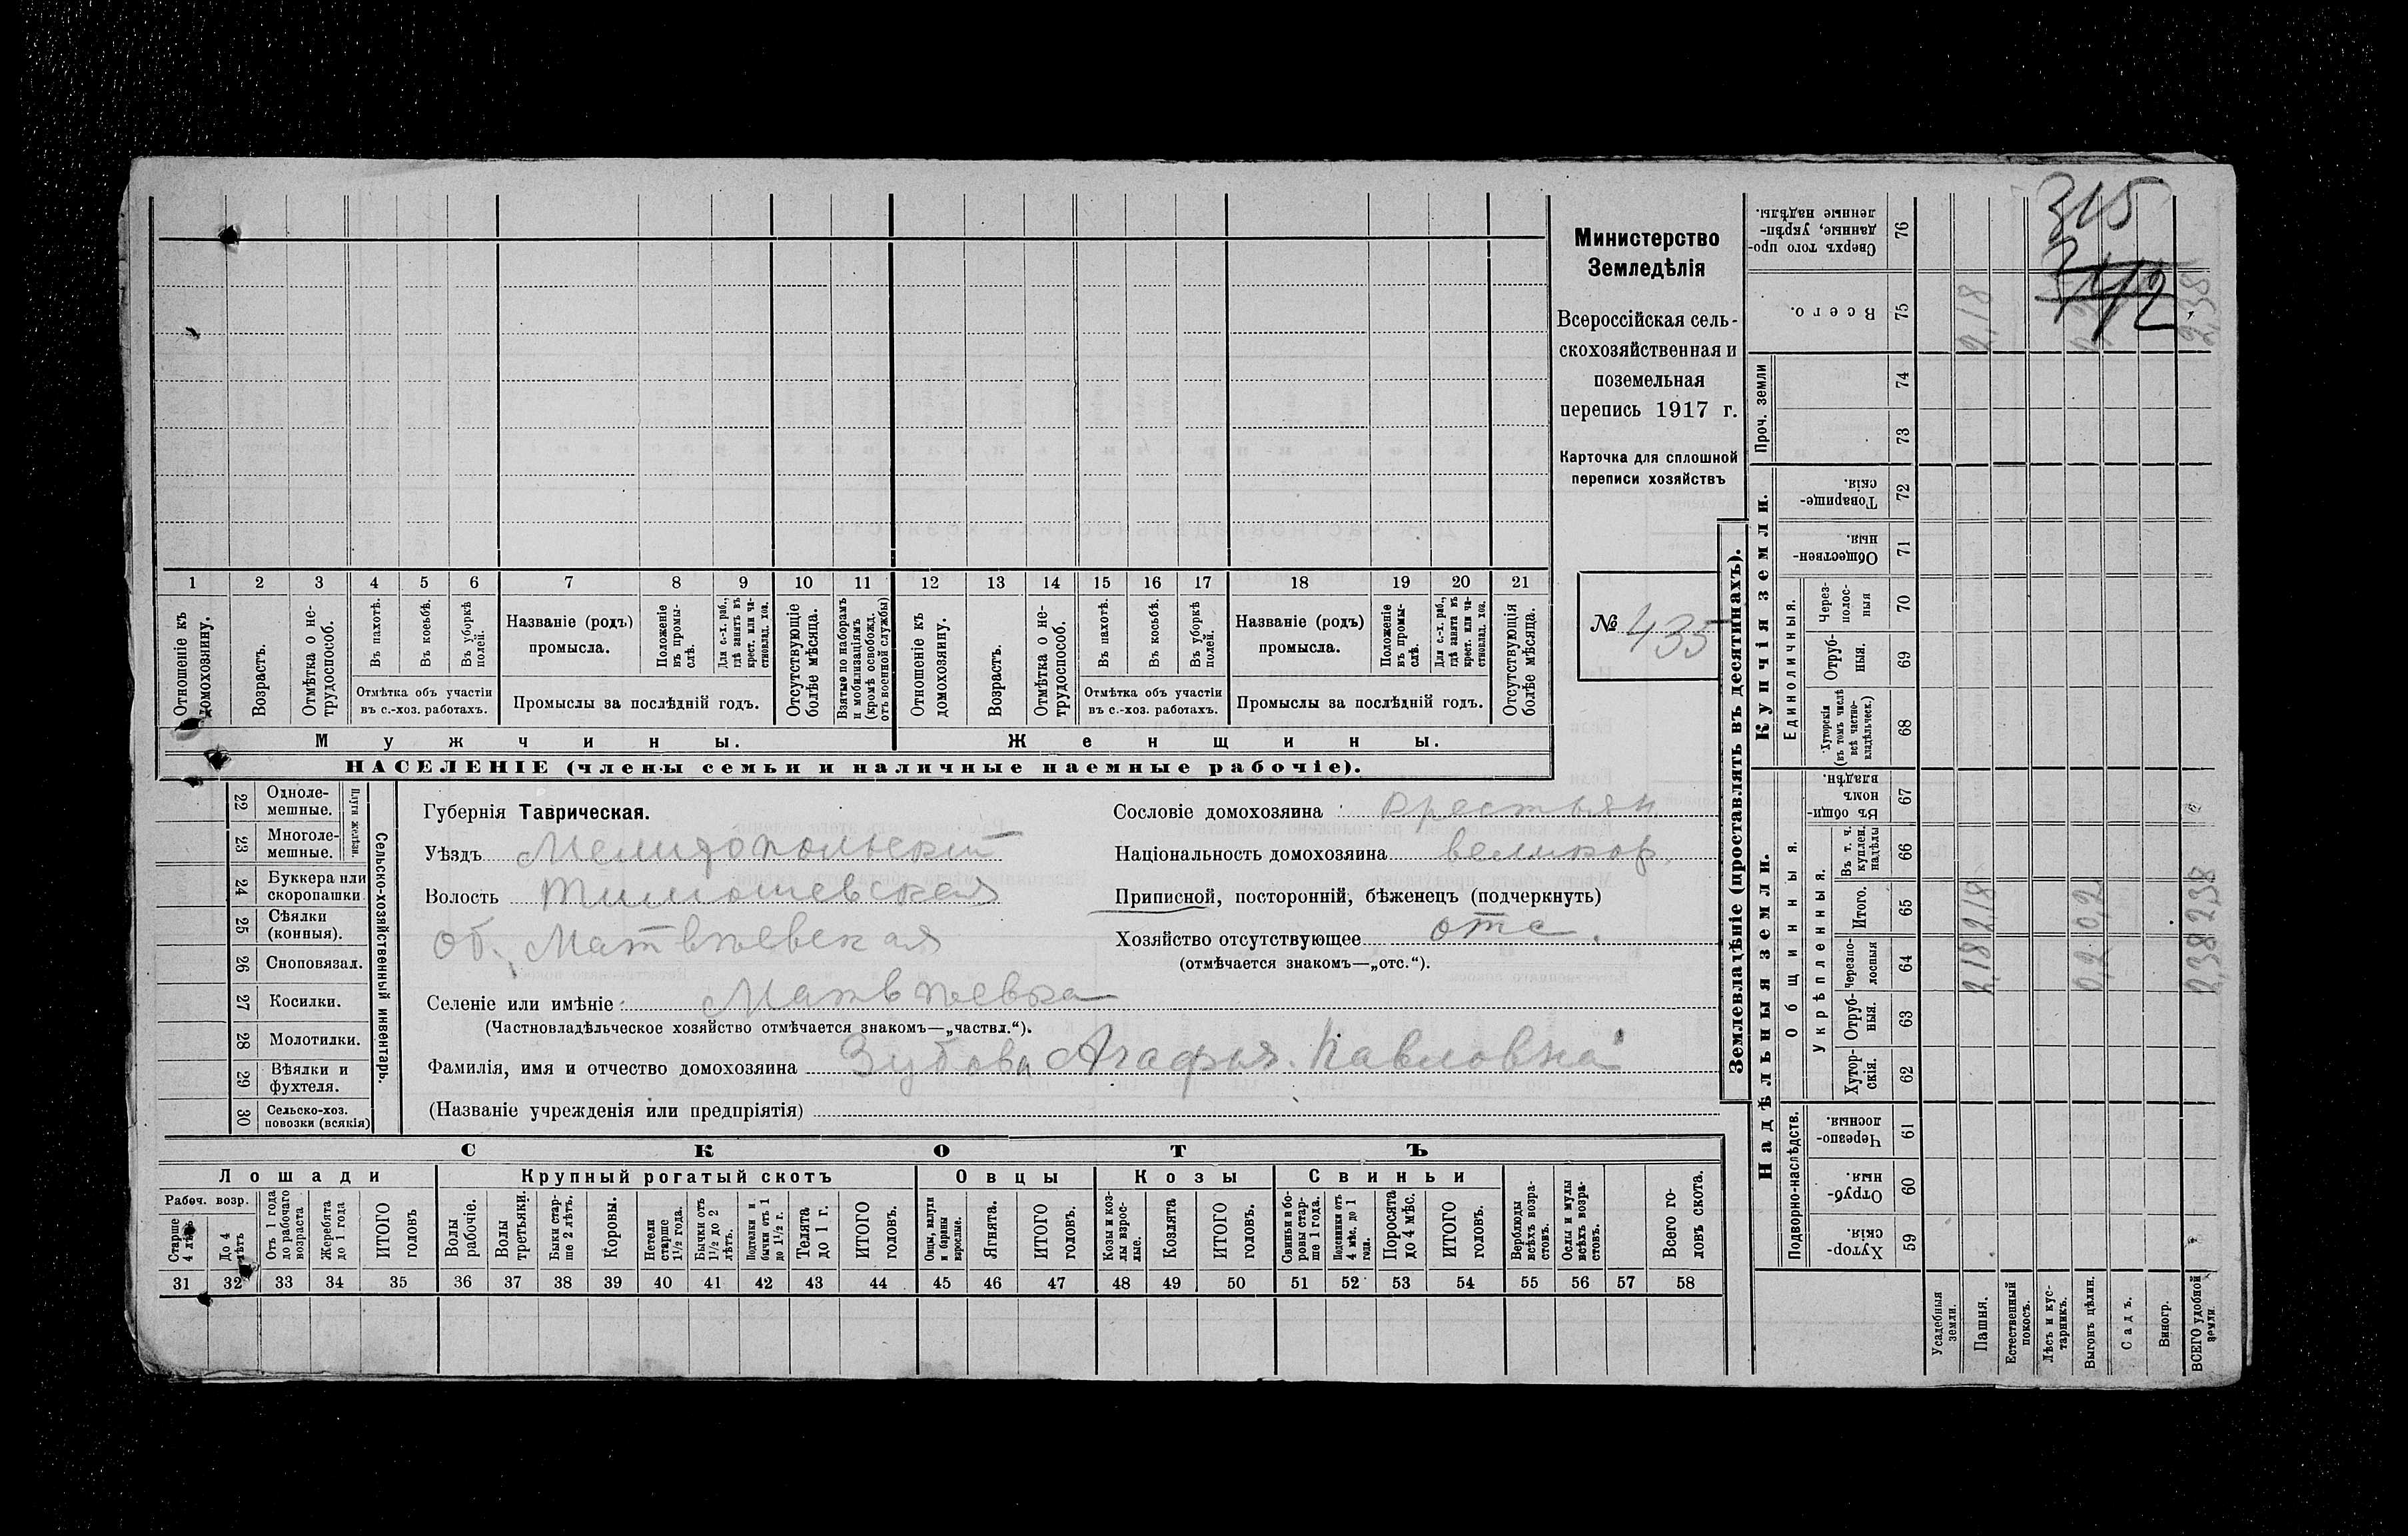 315
112
Министерство
Земледѣлія
Всероссійская сель-
скохозяйственная и
поземельная
перепись 1917 г.
Карточка для сплошной
переписи хозяйствъ
№ 435
1 2 3 4 5 6 7 8 9 10 11 12 13 14 15 16 17 18 19 20 21
Отношеніе къ домохозяину.
Возрастъ.
Отмѣтка о не-трудоспособ.
Въ пахотѣ.
Въ косьбѣ.
Въ уборкѣ полей.
Названіе (родъ) промысла.
Положеніе въ промы-слѣ.
Для с.-х. раб., гдѣ занятъ въ крест. или ча-стновлад. хоз.
Отсутствующіе болѣе мѣсяца.
Взятые по наборамъ и мобилизаціямъ (кромѣ освобожд. отъ военной службы)
Отношеніе къ домохозяину.
Возрастъ.
Отмѣтка о не-трудоспособ.
Въ пахотѣ.
Въ косьбѣ.
Въ уборкѣ полей.
Названіе (родъ) промысла.
Положеніе въ промы-слѣ.
Для с.-х. раб., гдѣ занята въ крест. или ча-стновлад. хоз.
Отсутствующія болѣе мѣсяца.
Отмѣтка объ участіи въ с.-хоз. работахъ.
Промыслы за послѣдній годъ.
Отмѣтка объ участіи въ с.-хоз. работахъ.
Промыслы за послѣдній годъ.
Мужчины.
Женщины.
НАСЕЛЕНІЕ (члены семьи и наличные наемные рабочіе).
Сельско-хозяйственный инвентарь.
Плуги желѣзн.
22 Одноле-мешные.
23 Многоле-мешные.
24 Буккера или скоропашки
25 Сѣялки (конныя).
26 Сноповязал.
27 Косилки.
28 Молотилки.
29 Вѣялки и фухтеля.
30 Сельско-хоз. повозки (всякія)
Губернія Таврическая.
Уѣздъ Мелитопольскій
Волость Тимошевская
об. Матвѣевская
Селеніе или имѣніе: Матвѣевка
(Частновладѣльческое хозяйство отмѣчается знакомъ—„частвл.“).
Фамилія, имя и отчество домохозяина Зубова Агафья Павловна
(Названіе учрежденія или предпріятія)
Сословіе домохозяина крестьян
Національность домохозяина великор.
Приписной, посторонній, бѣженецъ (подчеркнуть)
Хозяйство отсутствующее отс.
(отмѣчается знакомъ—„отс.“).
СКОТЪ
Лошади
Крупный рогатый скотъ
Овцы
Козы
Свиньи
Рабоч. возр.
Старше 4 лѣтъ
До 4 лѣтъ
Отъ 1 года до рабочаго возраста
Жеребята до 1 года
ИТОГО головъ
Волы рабочіе.
Волы третьяки.
Быки стар-ше 2 лѣтъ.
Коровы.
Нетели старше 1½ года.
Бычки отъ 1½ до 2 лѣтъ.
Подтелки и бычки отъ 1 до 1½ г.
Телята до 1 г.
ИТОГО головъ.
Овцы, валухи и бараны взрослые.
Ягнята.
ИТОГО головъ.
Козы и коз-лы взрос-лые.
Козлята
ИТОГО головъ.
Свиньи и бо-ровы стар-ше 1 года.
Подсвинки отъ 4 мѣс. до 1 года.
Поросята до 4 мѣс.
ИТОГО головъ.
Верблюды всѣхъ возра-стовъ.
Ослы и мулы всѣхъ возра-стовъ.
Всего го-ловъ скота.
31 32 33 34 35 36 37 38 39 40 41 42 43 44 45 46 47 48 49 50 51 52 53 54 55 56 57 58
Землевладѣніе (проставлять въ десятинахъ).
Надѣльныя земли.
Купчія земли.
Проч. земли
Подворно-наслѣдств.
Общинныя.
Укрѣпленныя.
Единоличныя.
59 Хутор-скія.
60 Отруб-ныя.
61 Черезпо-лосныя.
62 Хутор-скія.
63 Отруб-ныя.
64 Черезпо-лосныя
65 Итого.
66 Въ т. ч. куплен. надѣлы
67 Въ общи-номъ владѣн.
68 Хуторскія (въ томъ числѣ всѣ частно-владѣльческ.)
69 Отруб-ныя.
70 Через-полос-ныя
71 Обществен-ныя.
72 Товарище-скія.
73
74
75 Всего.
76 Сверхъ того про-данные, укрѣп-ленные надѣлы.
Усадебныя земли.
Пашня. 2,18 2,18 2,18
Естественный покосъ.
Лѣсъ и кус-тарникъ.
Выгонъ цѣлин. 0,2 0,2
Садъ.
Виногр.
ВСЕГО удобной земли. 2,38 2,38 2,38